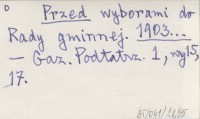 Przed wyborami do
Rady gminnej. 1903...
— Gaz. Podtatrz. 1, nry 15,
17.